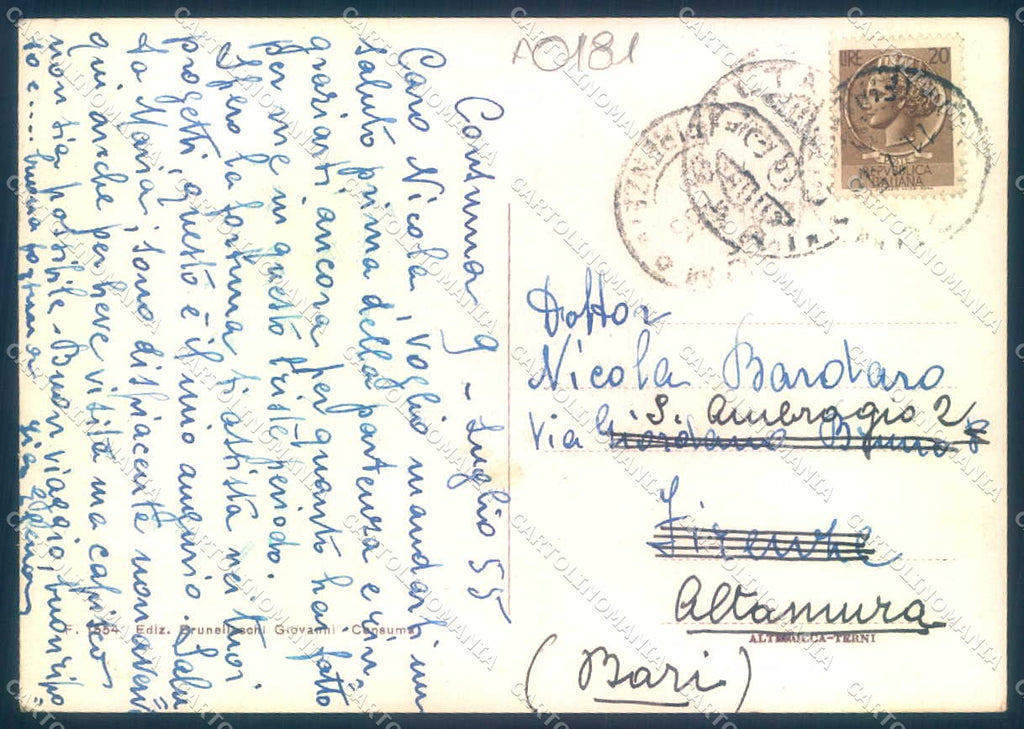 A0181
LIRE 20
REPVBBLICA
ITALIANA
FIRENZE
Consuma 9 - Luglio 55
Caro Nicola, voglio mandarti un
saluto prima della partenza e rin=
graziarti ancora per quanto hai fatto
per me in questo triste periodo.
Spero la fortuna ti assista nei tuoi
progetti, questo è il mio augurio. Salu
ta Maria, sono dispiacente non aver
vi anche per breve visita ma capisco
non sia possibile. Buon viaggio, buon ripo
so e.... buona fortuna
Dottor
Nicola Bardaro
S. Ambroggio 2
Via Giordano Bruno 8
Firenze
Altamura
(Bari)
F. 1554 Ediz. Brunelleschi Giovanni - Consuma
ALTEROCCA-TERNI
CARTOLINOMANIA